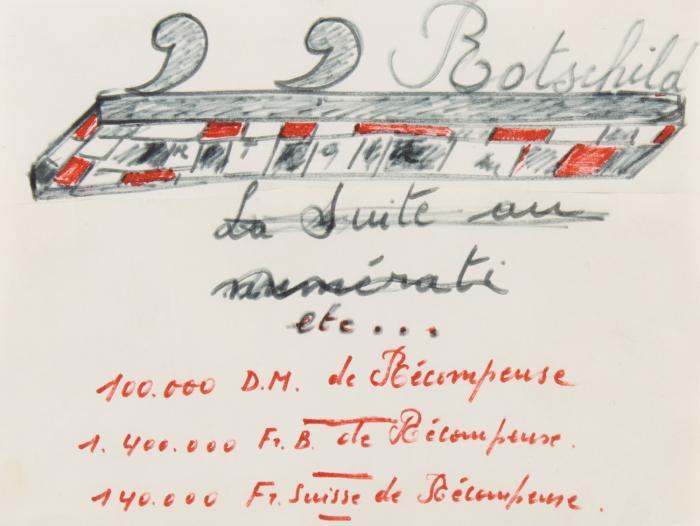 Rotschild
La Suite au
numérati
etc...
100.000 D.M. de Récompense
1.400.000 Fr. B. de Récompense.
140.000 Fr. Suisse de Récompense.